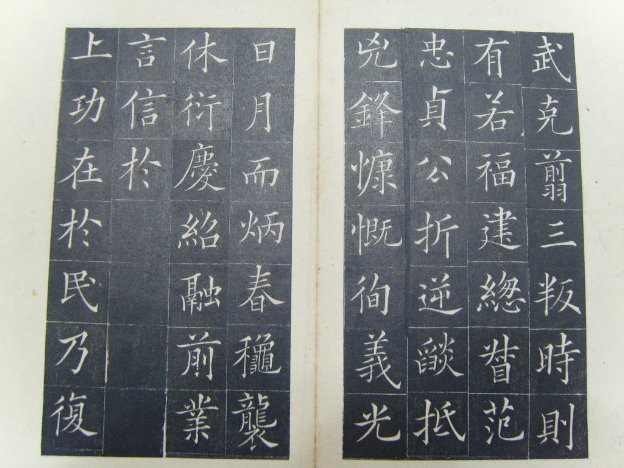 武克翦三叛時則
有若福建緫督范
忠貞公折逆燄抵
兇鋒慷慨徇義光
日月而炳春龝襲
休衍慶紹融前業
言信於
上功在於民乃復